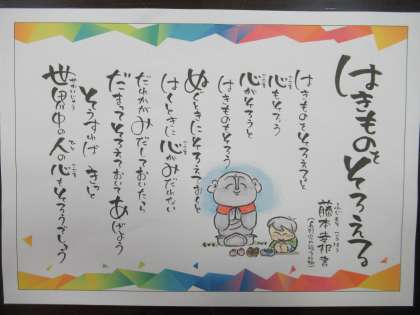 はきものをそろえる
ふじもと こうほう
藤本幸邦 書
はきものをそろえると
心もそろう
心がそろうと
はきものもそろう
ぬぐときにそろえておくと
はくときに心がみだれない
だれかがみだしておいたら
だまってそろえておいてあげよう
そうすればきっと
世界中の人の心もそろうでしょう